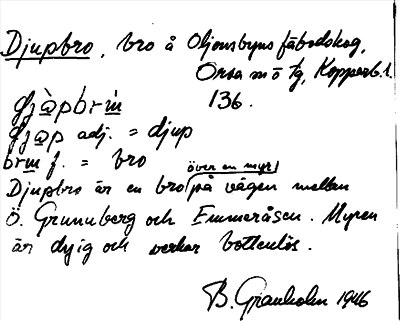 Djupbro, bro å Oljonsbyns fäbodskog,
Orsa
136.
adj. = djup
f. = bro
över en myr
Djupbro är en bro på vägen mellan
Ö. Grunuberg och Emmeråsen. Myren
är dyig och verkar bottenlös.
B. Granholm 1946